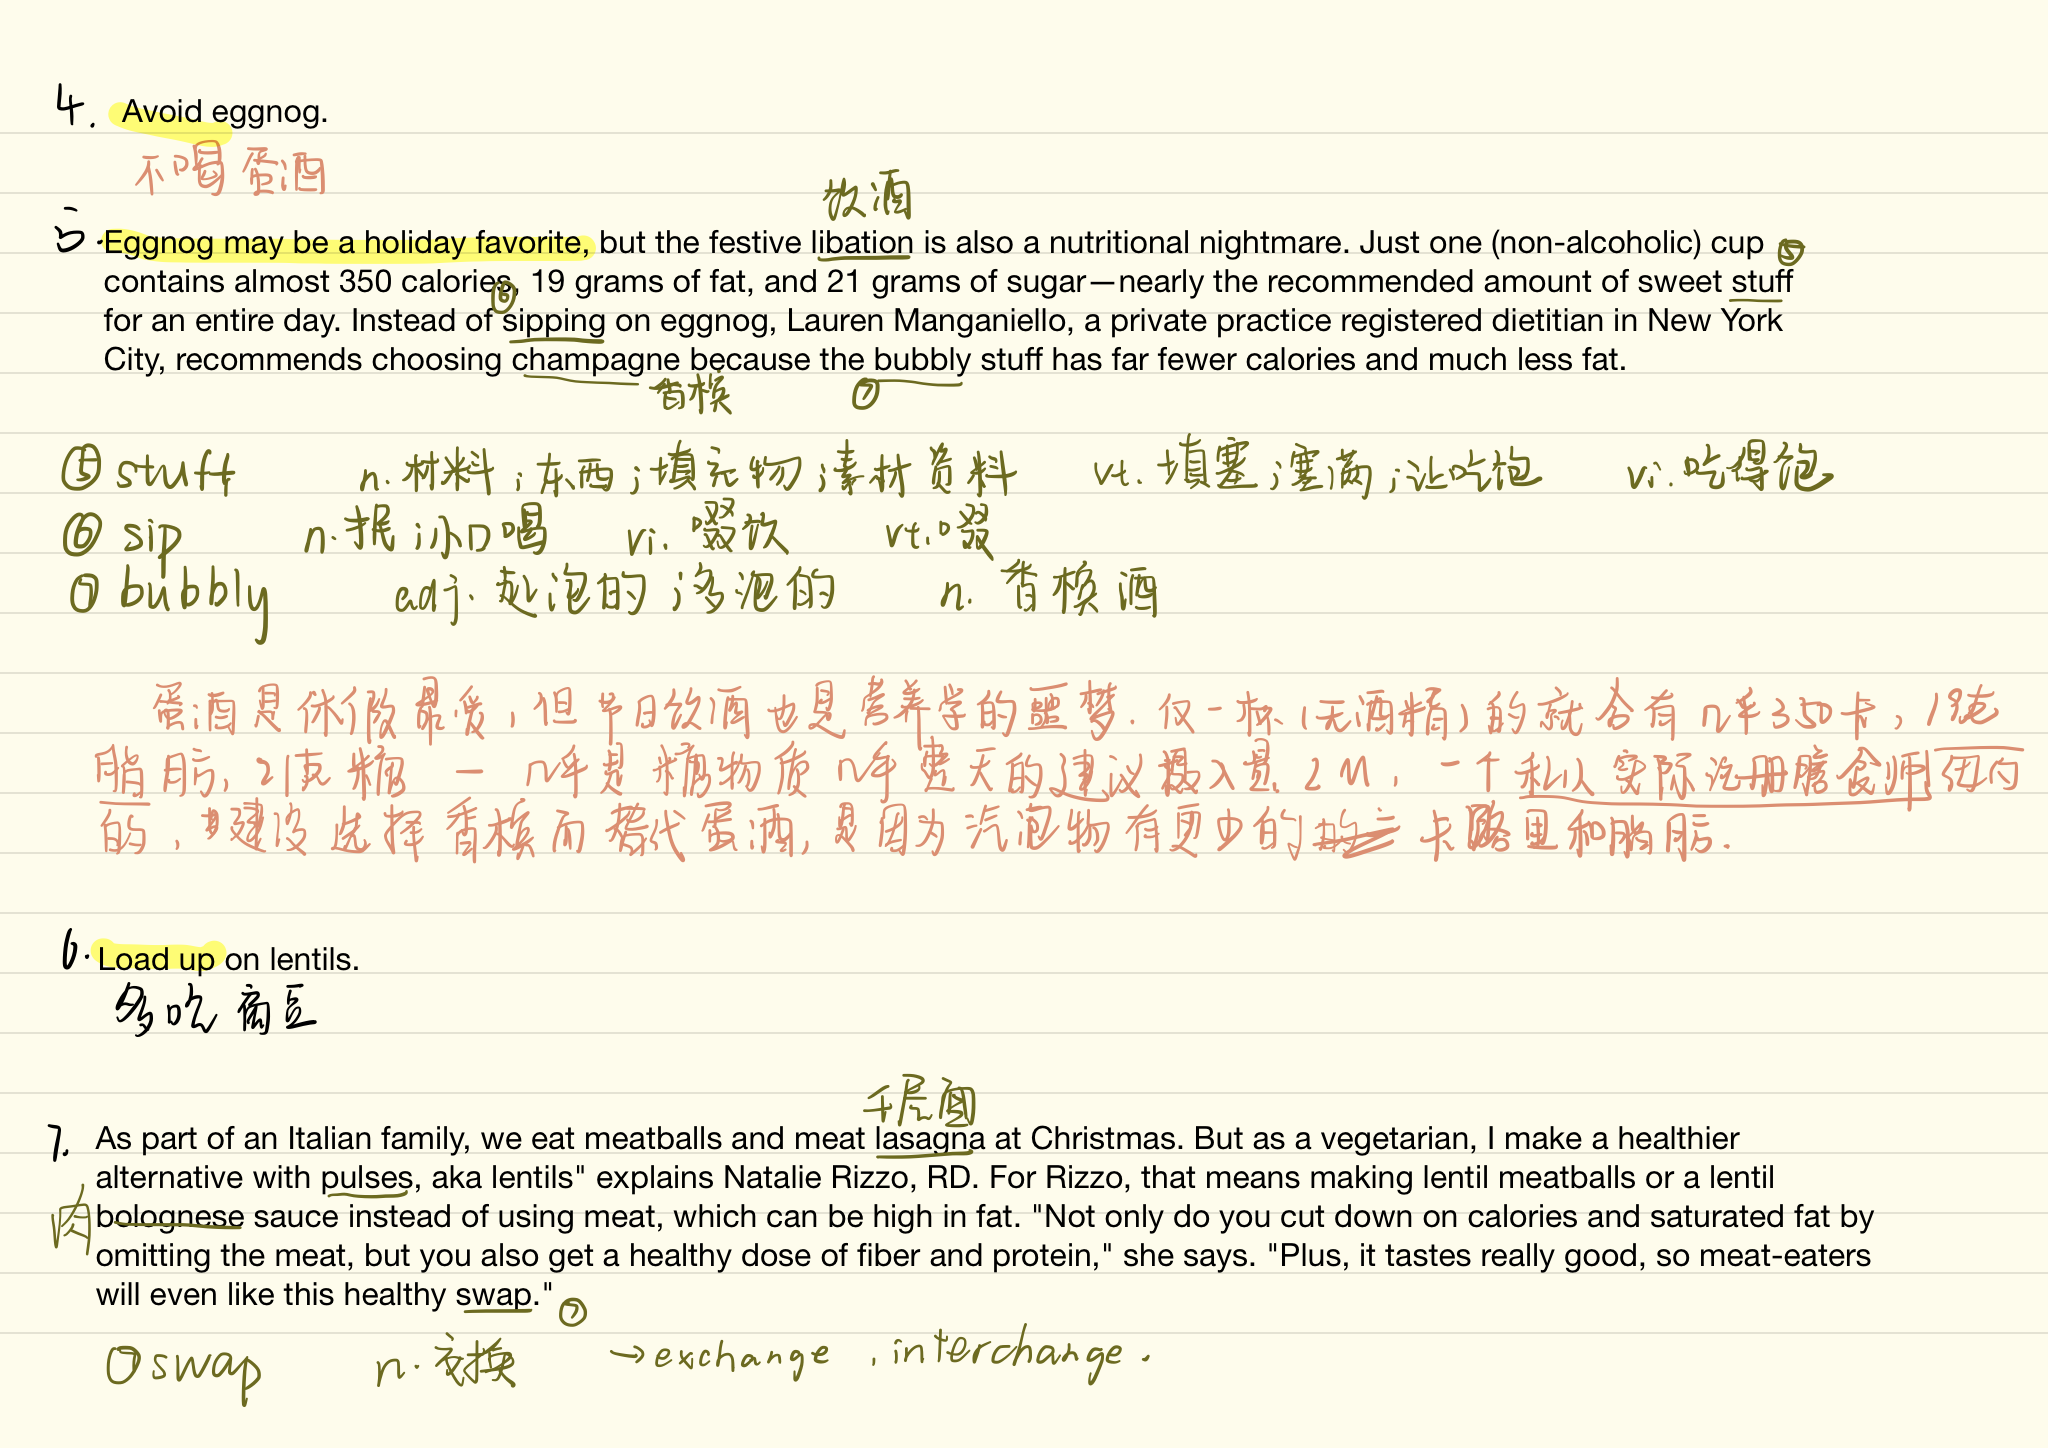 4. Avoid eggnog.
不喝蛋酒
放酒
5. Eggnog may be a holiday favorite, but the festive libation is also a nutritional nightmare. Just one (non-alcoholic) cup ⑤
contains almost 350 calories, 19 grams of fat, and 21 grams of sugar—nearly the recommended amount of sweet stuff
⑥
for an entire day. Instead of sipping on eggnog, Lauren Manganiello, a private practice registered dietitian in New York
City, recommends choosing champagne because the bubbly stuff has far fewer calories and much less fat.
香槟 ⑦
⑤ stuff n. 材料；东西；填充物；素材资料 vt. 填塞；塞满；让吃饱 vi. 吃得饱
⑥ sip n. 抿；小口喝 vi. 啜饮 vt. 啜
⑦ bubbly adj. 起泡的；多泡的 n. 香槟酒
蛋酒是休假最爱，但节日饮酒也是营养学的噩梦. 仅一杯(无酒精)的就含有几乎350卡，19克
脂肪，21克糖 — 几乎是糖物质几乎整天的建议摄入量. LM，一个私人实际注册膳食师纽约
的，建议选择香槟而替代蛋酒，是因为汽泡物有更少的卡路里和脂肪.
6. Load up on lentils.
多吃扁豆
千层面
7. As part of an Italian family, we eat meatballs and meat lasagna at Christmas. But as a vegetarian, I make a healthier
alternative with pulses, aka lentils" explains Natalie Rizzo, RD. For Rizzo, that means making lentil meatballs or a lentil
肉 bolognese sauce instead of using meat, which can be high in fat. "Not only do you cut down on calories and saturated fat by
omitting the meat, but you also get a healthy dose of fiber and protein," she says. "Plus, it tastes really good, so meat-eaters
will even like this healthy swap." ⑦
⑦ swap n. 交换 → exchange , interchange .